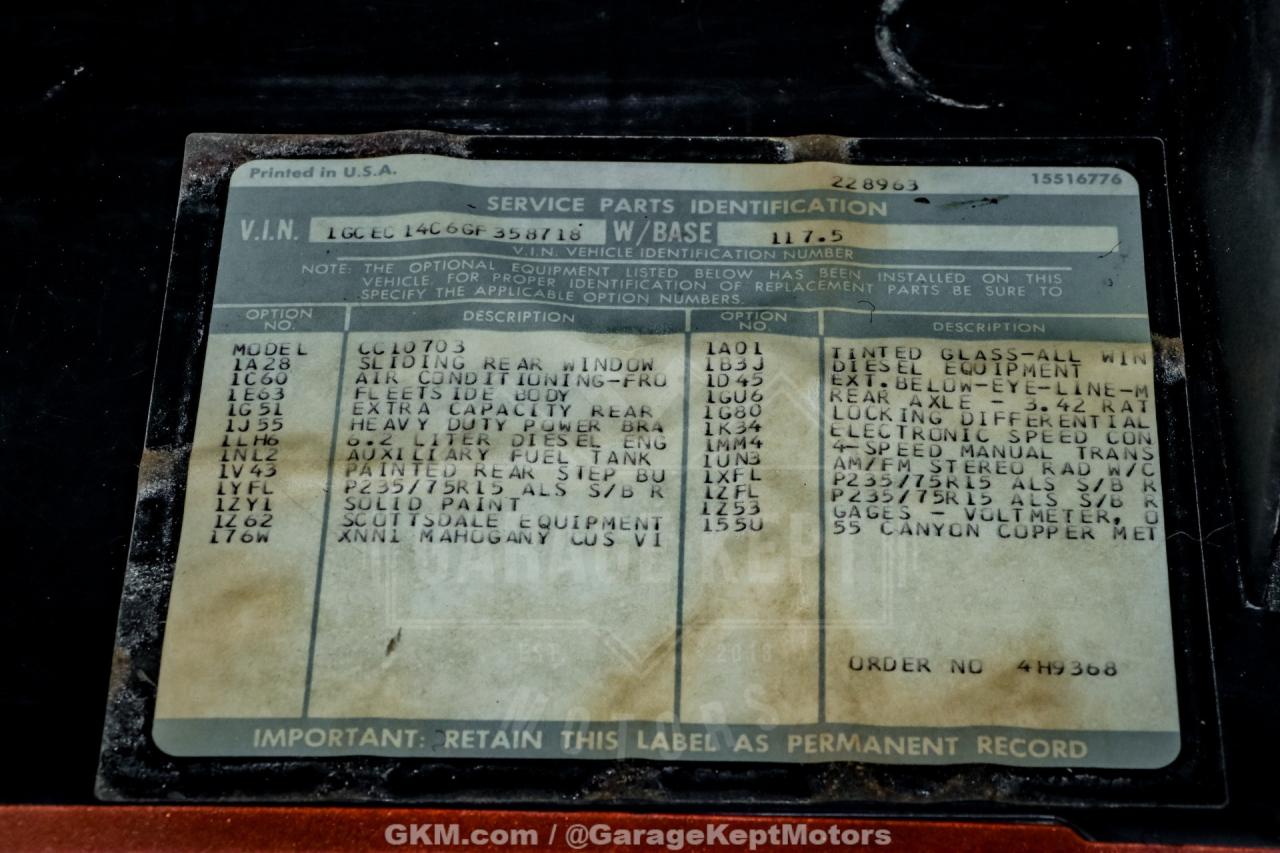 Printed in U.S.A. 228963 15516776
SERVICE PARTS IDENTIFICATION
V.I.N. 1GCEC14C6GF358718 W/BASE 117.5
V.I.N. VEHICLE IDENTIFICATION NUMBER
NOTE: THE OPTIONAL EQUIPMENT LISTED BELOW HAS BEEN INSTALLED ON THIS
VEHICLE. FOR PROPER IDENTIFICATION OF REPLACEMENT PARTS BE SURE TO
SPECIFY THE APPLICABLE OPTION NUMBERS.
OPTION NO. DESCRIPTION OPTION NO. DESCRIPTION
MODEL CC10703 1A01 TINTED GLASS-ALL WIN
1A28 SLIDING REAR WINDOW 1B3J DIESEL EQUIPMENT
1C60 AIR CONDITIONING-FRO 1D45 EXT.BELOW-EYE-LINE-M
1E63 FLEETSIDE BODY 1GU6 REAR AXLE - 3.42 RAT
1G51 EXTRA CAPACITY REAR 1G80 LOCKING DIFFERENTIAL
1J55 HEAVY DUTY POWER BRA 1K34 ELECTRONIC SPEED CON
1LH6 6.2 LITER DIESEL ENG 1MM4 4-SPEED MANUAL TRANS
1NL2 AUXILIARY FUEL TANK 1UN3 AM/FM STEREO RAD W/C
1V43 PAINTED REAR STEP BU 1XFL P235/75R15 ALS S/B R
1YFL P235/75R15 ALS S/B R 1ZFL P235/75R15 ALS S/B R
1ZY1 SOLID PAINT 1Z53 GAGES - VOLTMETER, O
1Z62 SCOTTSDALE EQUIPMENT 155U 55 CANYON COPPER MET
176W XNN1 MAHOGANY CUS VI
GARAGE KEPT
EST. 2018
MOTORS
ORDER NO 4H9368
IMPORTANT: RETAIN THIS LABEL AS PERMANENT RECORD
GKM.com / @GarageKeptMotors